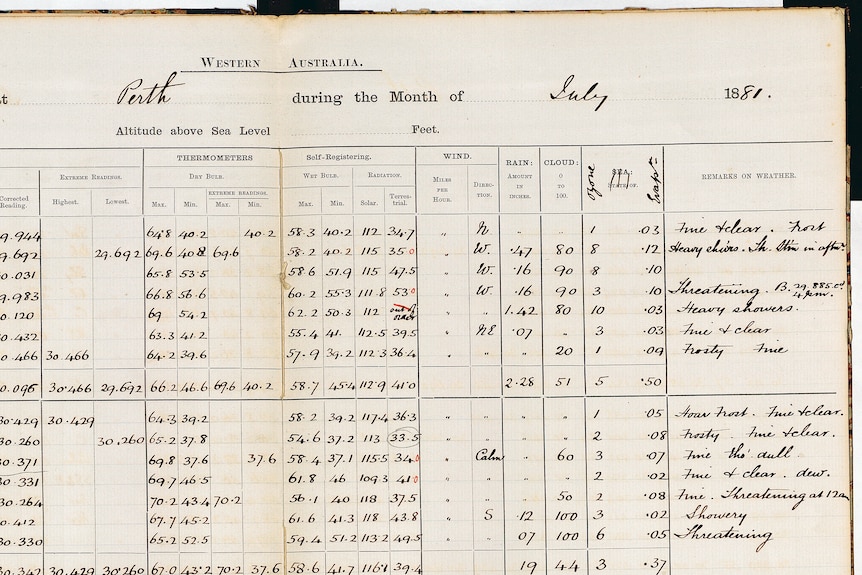 WESTERN AUSTRALIA.
at Perth during the Month of July 1881.
Altitude above Sea Level Feet.
THERMOMETERS Self-Registering. WIND. RAIN: CLOUD: Ozone SEA: Evapn
DRY BULB. WET BULB. RADIATION. MILES PER HOUR. DIREC-TION. AMOUNT IN INCHES. 0 TO 100. STATE OF. REMARKS ON WEATHER.
Corrected Reading. EXTREME READINGS. EXTREME READINGS.
Highest. Lowest. Max. Min. Max. Min. Max. Min. Solar. Terres-trial.
9.944 64.8 40.2 40.2 58.3 40.2 112 34.7 " N " " 1 .03 Fine & clear. Frost
9.692 29.692 69.6 40.8 69.6 58.2 40.2 115 35.0 " W. .47 80 8 .12 Heavy shwrs. Th. Stm in aftn.
0.031 65.8 53.5 58.6 51.9 115 47.5 " W. .16 90 8 .10
9.983 66.8 56.6 60.2 55.3 111.8 53.0 " W. .16 90 3 .10 Threatening. B. 29.885 at 4 p.m.
0.120 69 54.2 62.2 50.3 112 out of order " " 1.42 80 10 .03 Heavy showers.
0.432 63.3 41.2 55.4 41. 112.5 39.5 " NE .07 " 3 .03 Fine & clear
0.466 30.466 64.2 39.6 57.9 39.2 112.3 36.4 " " " 20 1 .09 Frosty Fine
0.096 30.466 29.692 66.2 46.6 69.6 40.2 58.7 45.4 112.9 41.0 2.28 51 5 .50
30.429 30.429 64.3 39.2 58.2 39.2 117.4 36.3 " " " " 1 .05 Hoar Frost. Fine & clear.
30.260 30.260 65.2 37.8 54.6 37.2 113 33.5 " " " " 2 .08 Frosty. Fine & clear.
30.371 69.8 37.6 37.6 58.4 37.1 115.5 34.0 " Calm " 60 3 .07 Fine tho' dull.
30.331 69.7 46.5 61.8 46 109.3 41.0 " " " " 2 .02 Fine & clear. dew.
30.264 70.2 43.4 70.2 56.1 40 118 37.5 " " " 50 2 .08 Fine. Threatening at 12am
0.412 67.7 45.2 61.6 41.3 118 43.8 " S .12 100 3 .02 Showery
30.330 65.2 52.5 59.4 51.2 113.2 49.5 " " 07 100 6 .05 Threatening
30.342 30.429 30.260 67.0 43.2 70.2 37.6 58.6 41.7 116.1 39.4 19 44 3 .37